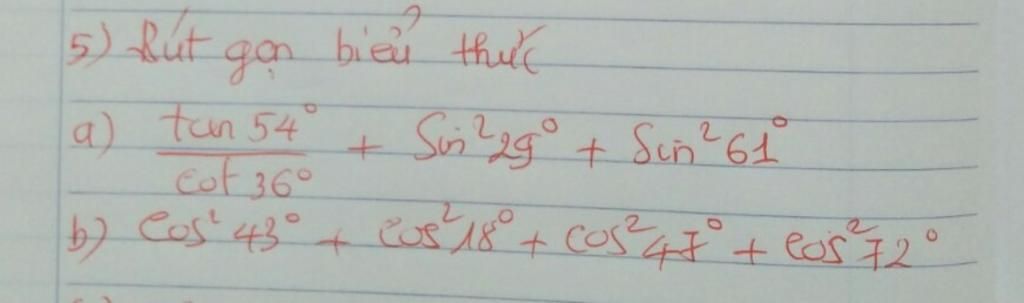 5) Rút gọn biểu thức
a) tan 54° / cot 36° + Sin²29° + Sin²61°
b) cos²43° + cos²18° + cos²47° + cos²72°